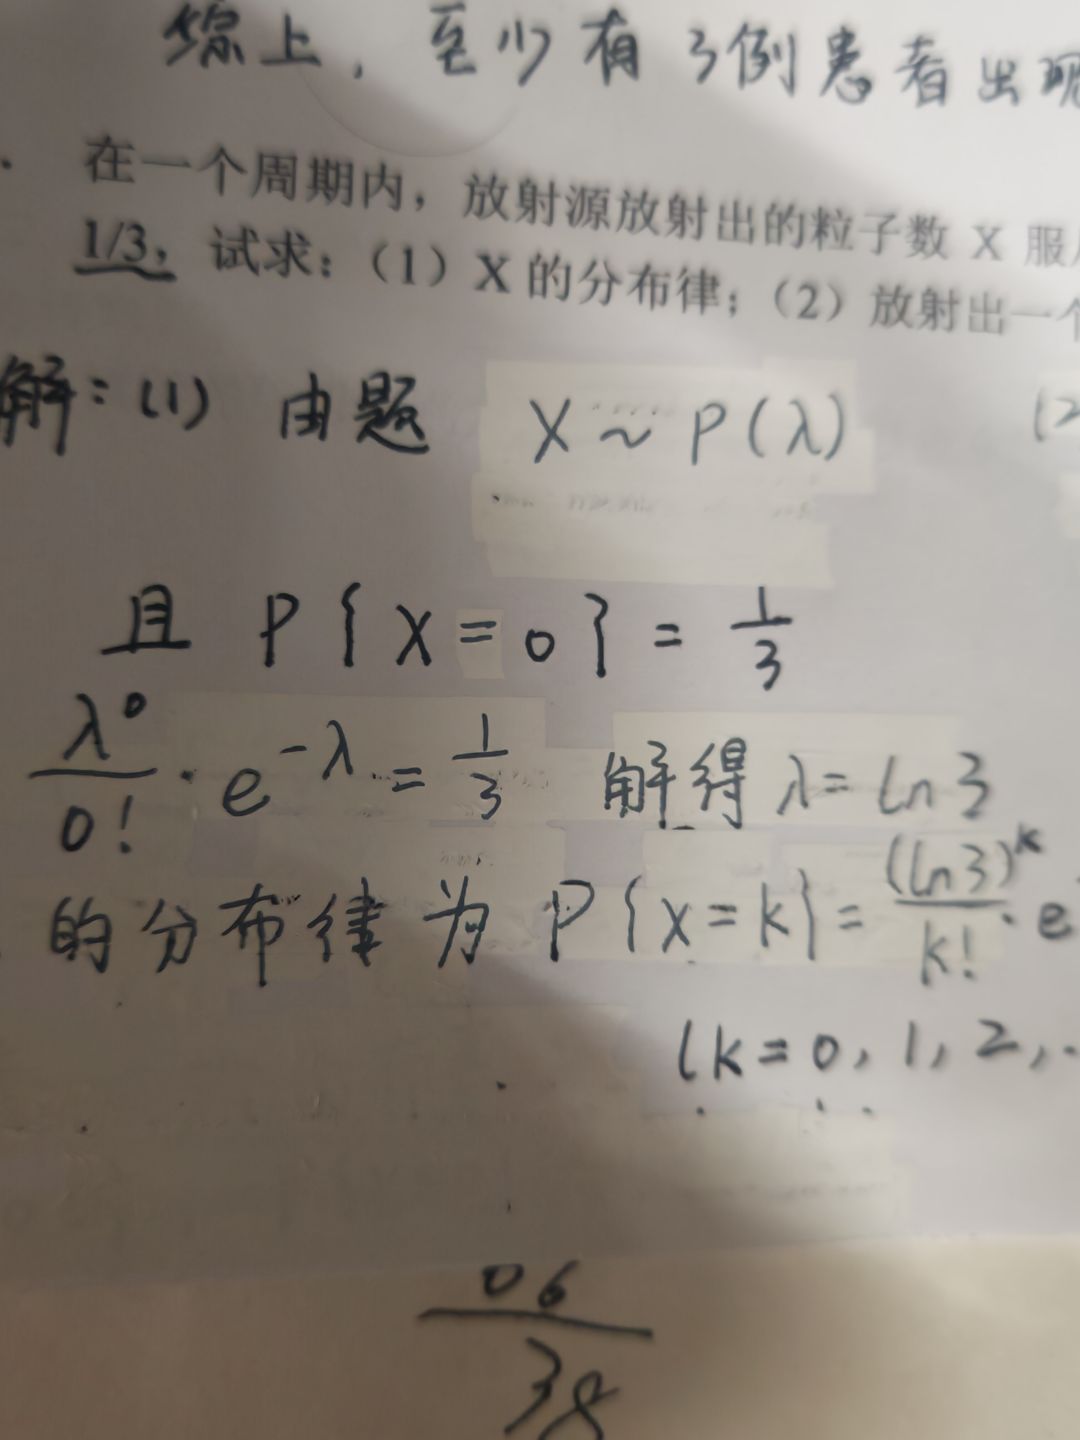 综上，至少有3例患者出现
在一个周期内，放射源放射出的粒子数 X 服
1/3，试求：（1）X 的分布律；（2）放射出一个
解：(1) 由题 X ~ P(λ) (2
且 P{X=0} = 1/3
λ⁰/0! · e^{-λ} = 1/3 解得 λ = ln3
的分布律为 P{X=k} = (ln3)^k/k! · e
(k=0, 1, 2, .
06
38